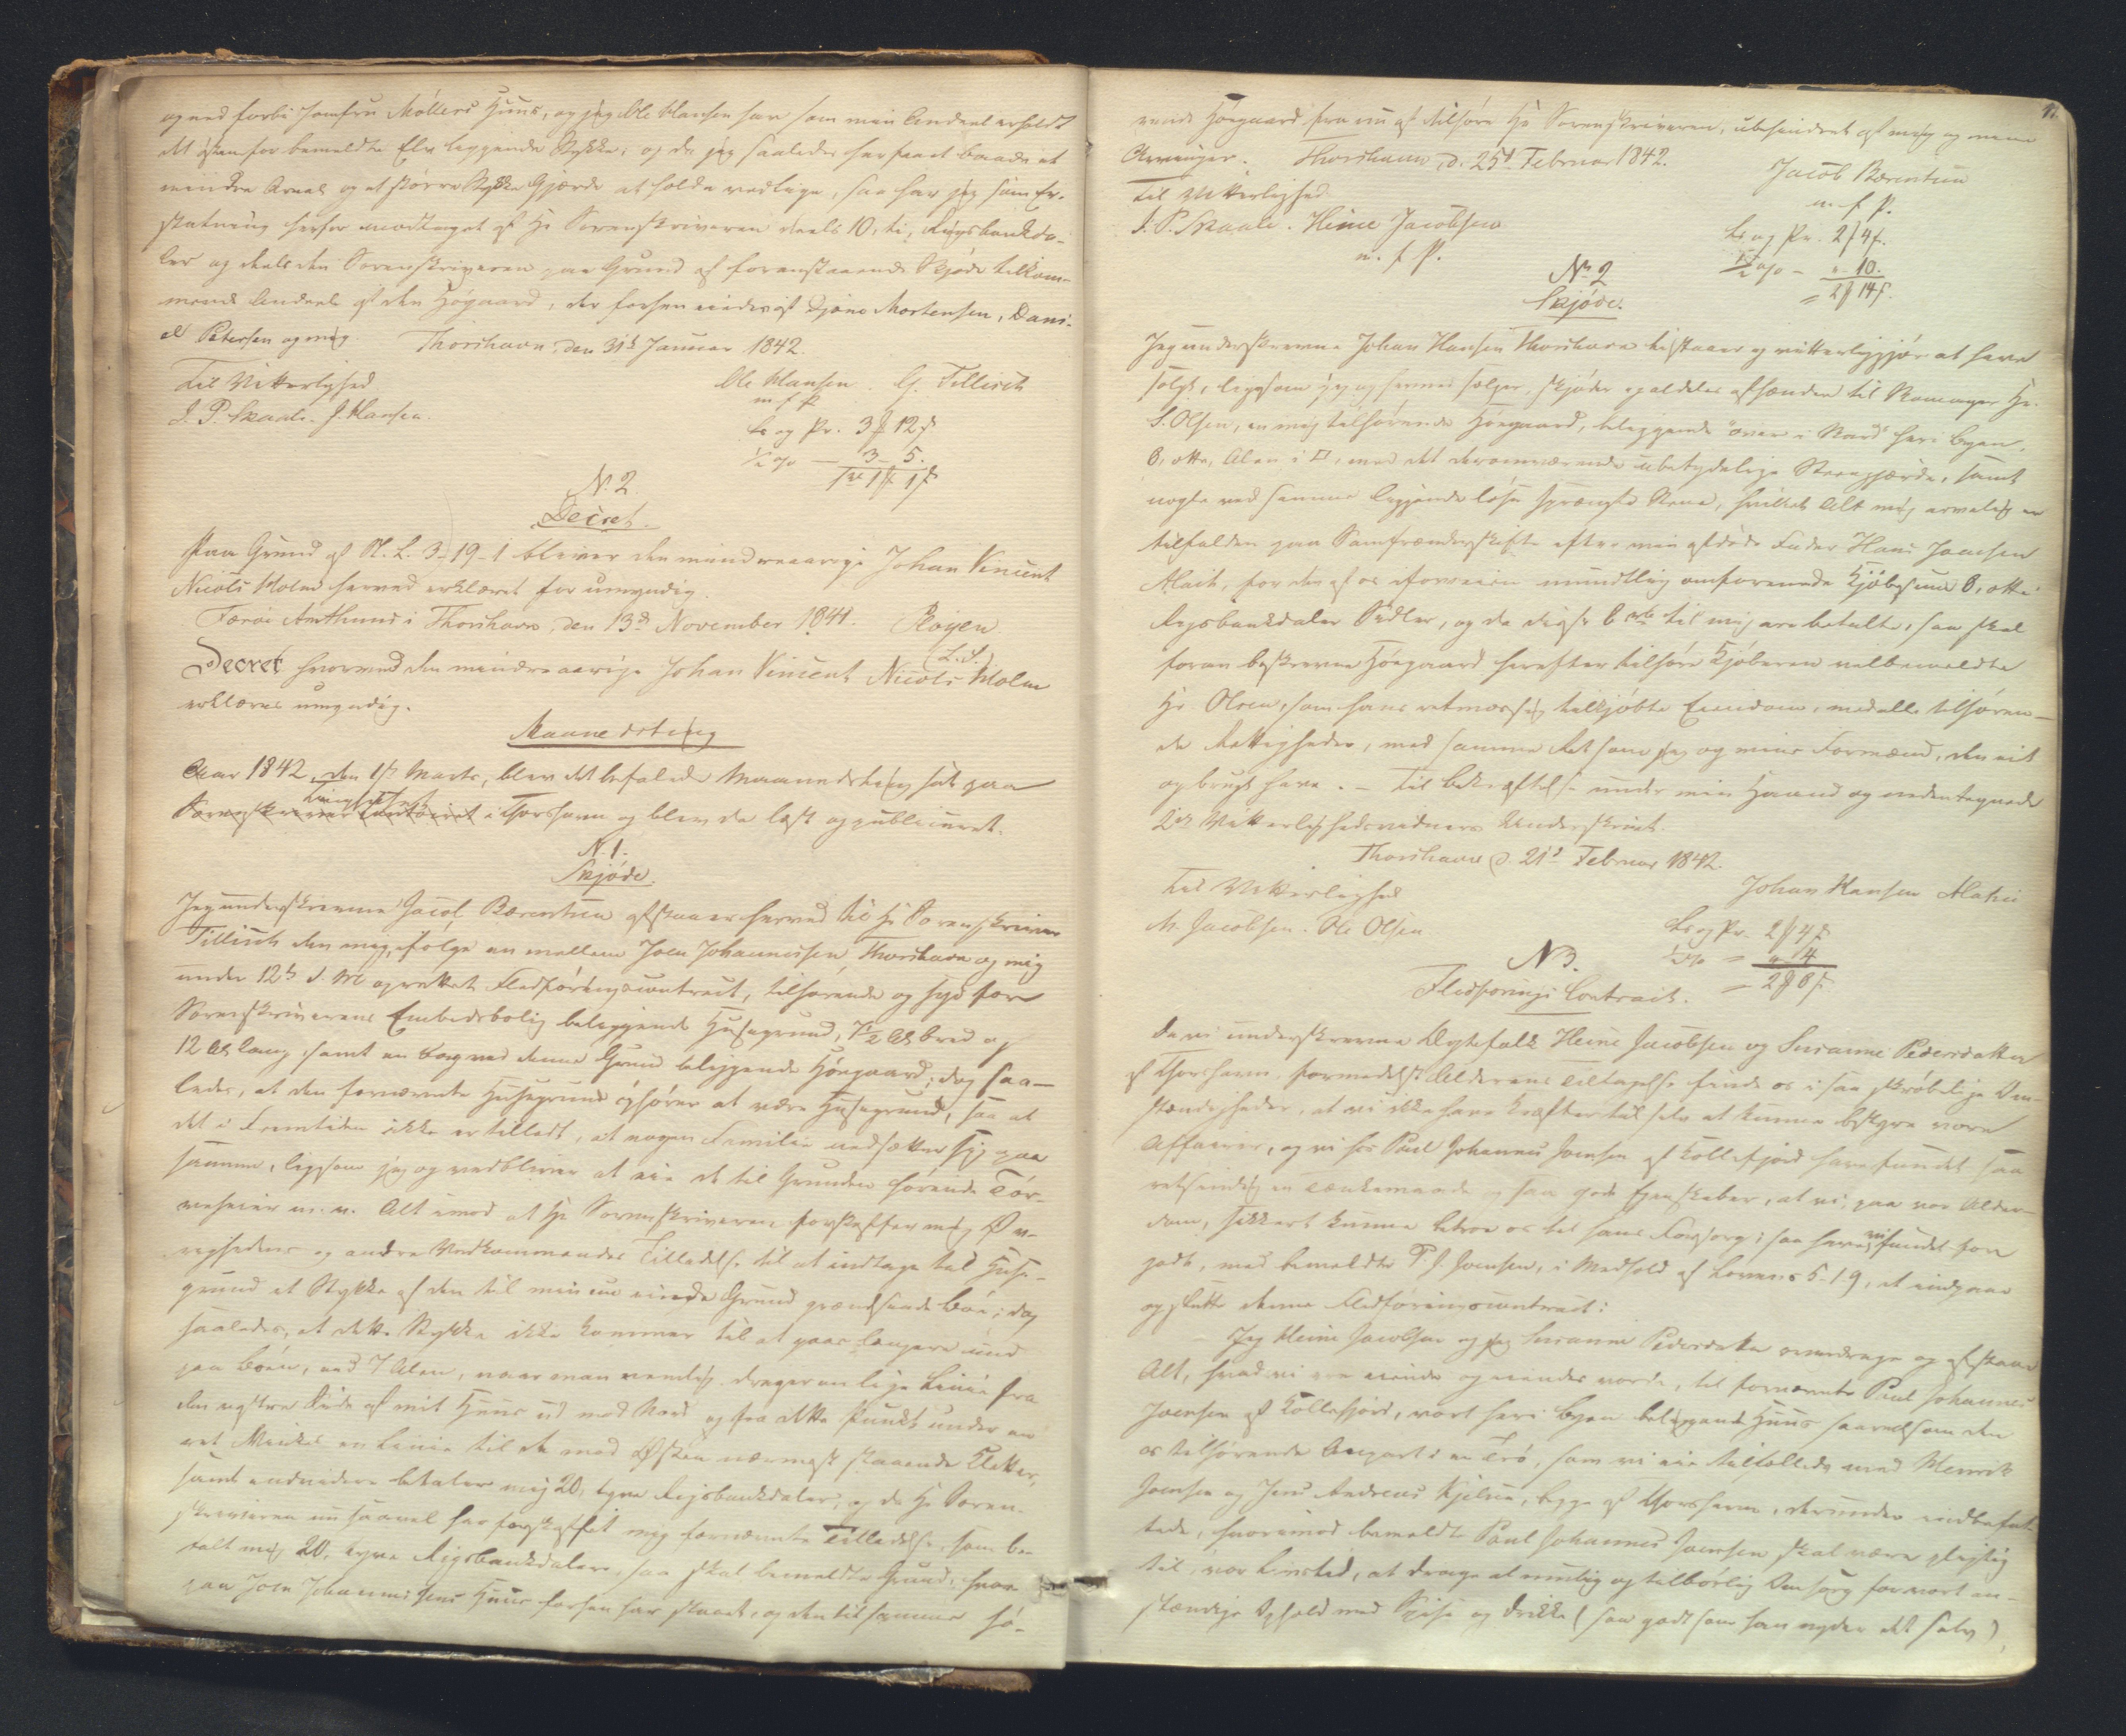 og ned forbi Jomfru Möllers Huus, og jeg Ole Hansen har som min Andeel erholdt
det östenfor bemeldte Elv liggende Stykke; og da jeg saaledes har faaet baade et
mindre Areal og et större Stykke Gjærde at holde vedlige, saa har jeg som Er-
statning herfor modtaget af Hr Sorenskriveren deels 10, ti, Rigsbankda-
ler og deels den Sorenskriveren paa Grund af foranstaaende Skjöde tilkom-
mende Andeel af den Högaard, der forhen eiedes af Djóne Mortensen, Dani-
el Petersen og mig. Thorshavn, den 31te Januar 1842.
Til Vitterlighed Ole Hansen. G. Tillisch
J. P. Skaale. J. Hansen. m. f. P.
Ls og Pr. 3 12
½ % — 3 - 5.
N. 2
Decret.
Paa Grund af N. L. 3-19-1 bliver den mindreaarige Johan Vincent
Nicoli Holm herved erklæret for umyndig.
Færöe Amthuus i Thorshavn, den 13de November 1841. Pløyen
(L. S.)
Decret hvorved den mindreaarige Johan Vincent Nicoli Holm
erklæres umyndig.
Maanedsting
Aar 1842, den 1ste Marts, blev det befalede Maanedsting sat paa
Tinghuset
Sorenskriver Contoiret i Thorshavn og blev da læst og publiceret.
N. 1.
Skjöde.
Jeg underskrevne Jacob Bærentsen afstaaer herved til Hr Sorenskriver
Tillisch den mig, ifölge en mellem Joen Johannessen, Thorshavn og mig
under 12te d. M. oprettet Fledföringscontract, tilhörende og syd for
Sorenskriverens Embedsbolig beliggende Huusgrund, 7½ Al. bred og
12 Al. lang, samt en tæg ved denne Grund beliggende Högaard; dog saa-
ledes, at den fornævnte Huusgrund ophörer at være Huusgrund, saa at
det i Fremtiden ikke er tilladt, at nogen Familie nedsætter sig paa
samme, ligesom jeg og vedbliver at eie de til Grunden hörende Tör-
veskier m. v. Alt imod at Hr Sorenskriveren forskaffer mig Øv-
righedens og andre Vedkommendes Tilladelse til at indtage til Huus-
grund et Stykke af den til min nu eiende Grund grændsende Böe; dog
saaledes, at dette Stykke ikke kommer til at gaae længere ind
paa Böen, end 7 Alen, naar man nemlig drager en lige Linie fra
den östre Side af mit Huus ud mod Nord og fra dette Punkt under en
ret Vinkel en Linie til de mod Østen nærmest staaende Klætter,
samt endvidere betaler mig 20, tyve Rigsbankdaler; og da Hr Soren-
skriveren nu saavel har forskaffet mig fornævnte Tilladelse, som be-
talt mig 20, tyve Rigsbankdaler, saa skal bemeldte Grund, hvor-
paa Joen Johannessens Huus forhen har staaet, og den til samme hö-
rende Högaard fra nu af tilhöre Hr Sorenskriveren, ubehindret af mig og mine
Arvinger. Thorshavn, d. 25de Februar 1842.
Til Vitterlighed Jacob Bærentsen
J. P. Skaale. Heine Jacobsen m. f. P.
m. f. P. Ls og Pr. 2 4
½ % — " - 10.
= 2 14
No 2
Skjöde.
Jeg underskrevne Johan Hansen Thorshavn tilstaaer og vitterliggjör at have
solgt, ligesom jeg og hermed sælger, skjöder og aldeles afhænder til Hr.
S. Olsen, en mig tilhörende Höegaard, beliggende "over i Nord" her i Byen,
8, otte, Alen i □, med det deromværende ubetydelige Steengjærde, samt
nogle ved samme liggende löse sprængte Stene, hvilket Alt mig arvelig er
tilfalden paa Samfrændeskifte efter min afdöde Fader Hans Joensen
Alach, for den af os iforveien mundtlig omforenede Kjöbesum 8, otte
Rigsbankdaler Sedler, og da disse 8 rbd til mig ere betalte, saa skal
foran beskrevne Höegaard herefter tilhöre Kjöberen velbemeldte
Hr Olsen, som hans retmæssig tilkjöbte Eiendom, med alle tilhören-
de Rettigheder, med samme Ret som jeg og mine Formænd, den eiet
og brugt have. — Til Bekræftelse under min Haand og undertegnede
2de Vitterlighedsvidners Underskrivt.
Thorshavn d. 21de Februar 1842.
Til Vitterlighed Johan Hansen
M. Jacobsen. Ole Olsen. Ls og Pr. 2 4
½ % = " - 4
N 3. = 2 8
Fledförings Contract.
Da vi underskrevne Ægtefolk Heine Jacobsen og Susanne Pedersdatter
af Thorshavn, formedelst Alderens Tiltagelse finde os i saa skröbelige Om-
stændigheder, at vi ikke have Kræfter til selv at kunne bestyre vore
Affairer, og vi hos Poul Johannes Joensen af Kollefjord have fundet saa
retsindig en Tænkemaade og saa gode Egenskaber, at vi, paa vor Alder-
dom, sikkert kunne betroe os til hans Forsorg; saa have vi fundet for
godt, med bemeldte P. J. Joensen, i Medhold af Lovens 5-1-9, at indgaae
og slutte denne Fledföringscontract:
Jeg Heine Jacobsen og jeg Susanne Pedersdatter overdrage og afstaae
Alt, hvad vi ere eiende og eiendes vorde, til fornævnte Poul Johannes
Joensen af Kollefjord, vort her i Byen beliggende Huus saavelsom den
os tilhörende Anpart i en Trö, som vi eie tilfælleds med Henrik
Joensen og Jens Andreas Kjelsen, begge af Thorshavn, derunder indbefat-
tede, hvorimod bemeldte Poul Johannes Joensen skal være pligtig
til, vor Livstid, at drage al muelig og tilbörlig Omsorg for vort an-
stændige Ophold med Spise og Drikke (saa godt som han nyder det selv),